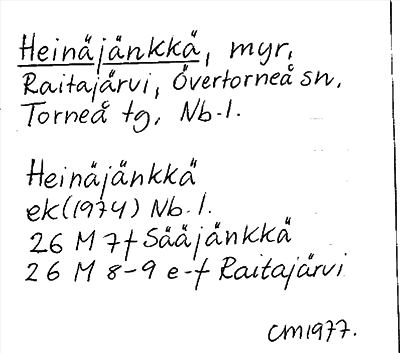 Heinäjänkkä, myr,
Raitajärvi, Övertorneå sn,
Torneå tg, Nb.l.
Heinäjänkkä
ek(1974) Nb.l.
26 M 7f Sääjänkkä
26 M 8-9 e-f Raitajärvi
CM1977.